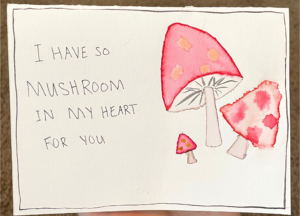 I HAVE SO
MUSHROOM
IN MY HEART
FOR YOU